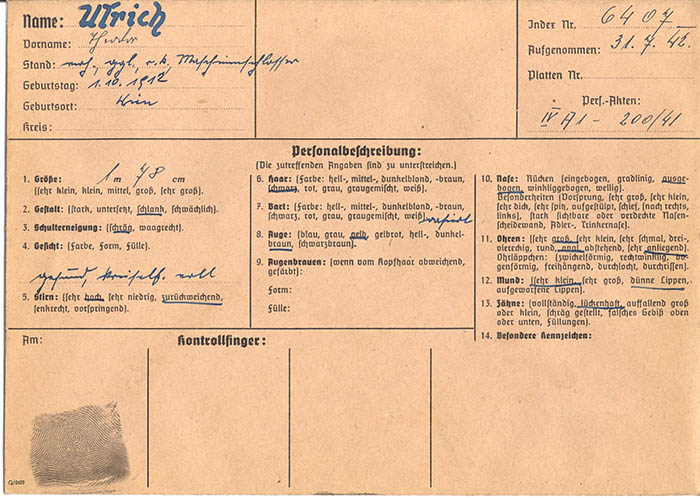 Name: Ulrich
Vorname: Theodor
Stand: verh., ggl., r.k., Maschinenschlosser
Geburtstag: 1.10.1912
Geburtsort: Wien
Kreis:
Index Nr. 6407
Aufgenommen: 31.7.42.
Platten Nr.
Pers.-Akten:
IV A1 - 200/41
Personalbeschreibung:
(Die zutreffenden Angaben sind zu unterstreichen.)
1. Größe: 1 m 78 cm
(sehr klein, klein, mittel, groß, sehr groß).
2. Gestalt: (stark, untersetzt, schlank, schwächlich).
3. Schulterneigung: (schräg, waagrecht).
4. Gesicht: (Farbe, Form, Fülle).
gesund, voll
5. Stirn: (sehr hoch, sehr niedrig, zurückweichend,
senkrecht, vorspringend).
6. Haar: (Farbe: hell-, mittel-, dunkelblond, -braun,
schwarz, rot, grau, graugemischt, weiß).
7. Bart: (Farbe: hell-, mittel-, dunkelblond, -braun,
schwarz, rot, grau, graugemischt, weiß) rasiert
8. Auge: (blau, grau, gelb, gelbrot, hell-, dunkel-
braun, schwarzbraun).
9. Augenbrauen: (wenn vom Kopfhaar abweichend,
gefärbt):
Form:
Fülle:
10. Nase: Rücken (eingebogen, gradlinig, ausge-
bogen, winkliggebogen, wellig).
Besonderheiten (Vorsprung, sehr groß, sehr klein,
sehr dick, sehr spitz, aufgestülpt, schief, [nach rechts,
links], stark sichtbare oder verdeckte Nasen-
scheidewand, Adler-, Trinkernase).
11. Ohren: (sehr groß, sehr klein, sehr schmal, drei-
viereckig, rund, oval, abstehend, sehr anliegend).
Ohrläppchen: (zwickelförmig, rechtwinklig, bo-
genförmig, freihängend, durchlocht, durchrissen).
12. Mund: (sehr klein, sehr groß, dünne Lippen,
aufgeworfene Lippen).
13. Zähne: (vollständig, lückenhaft, auffallend groß
oder klein, schräg gestellt, falsches Gebiß oben
oder unten, Füllungen).
14. Besondere Kennzeichen:
Am:
Kontrollfinger: